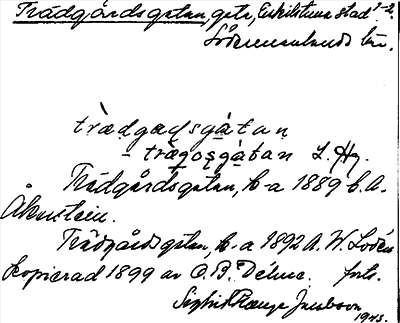 Trädgårdsgatan, gata, Eskilstuna stad 1-2.
Södermanlands län.
trädgạḍsgàtan
– trägọṣgatan L. Hg.
Trädgårdsgatan, k-a 1889 b. A.
Åkerstein.
Trädgårdsgatan, k-a 1892 A. W. Lodén
kopierad 1899 av O. B. Délme. forts.
Jacobson
1923.